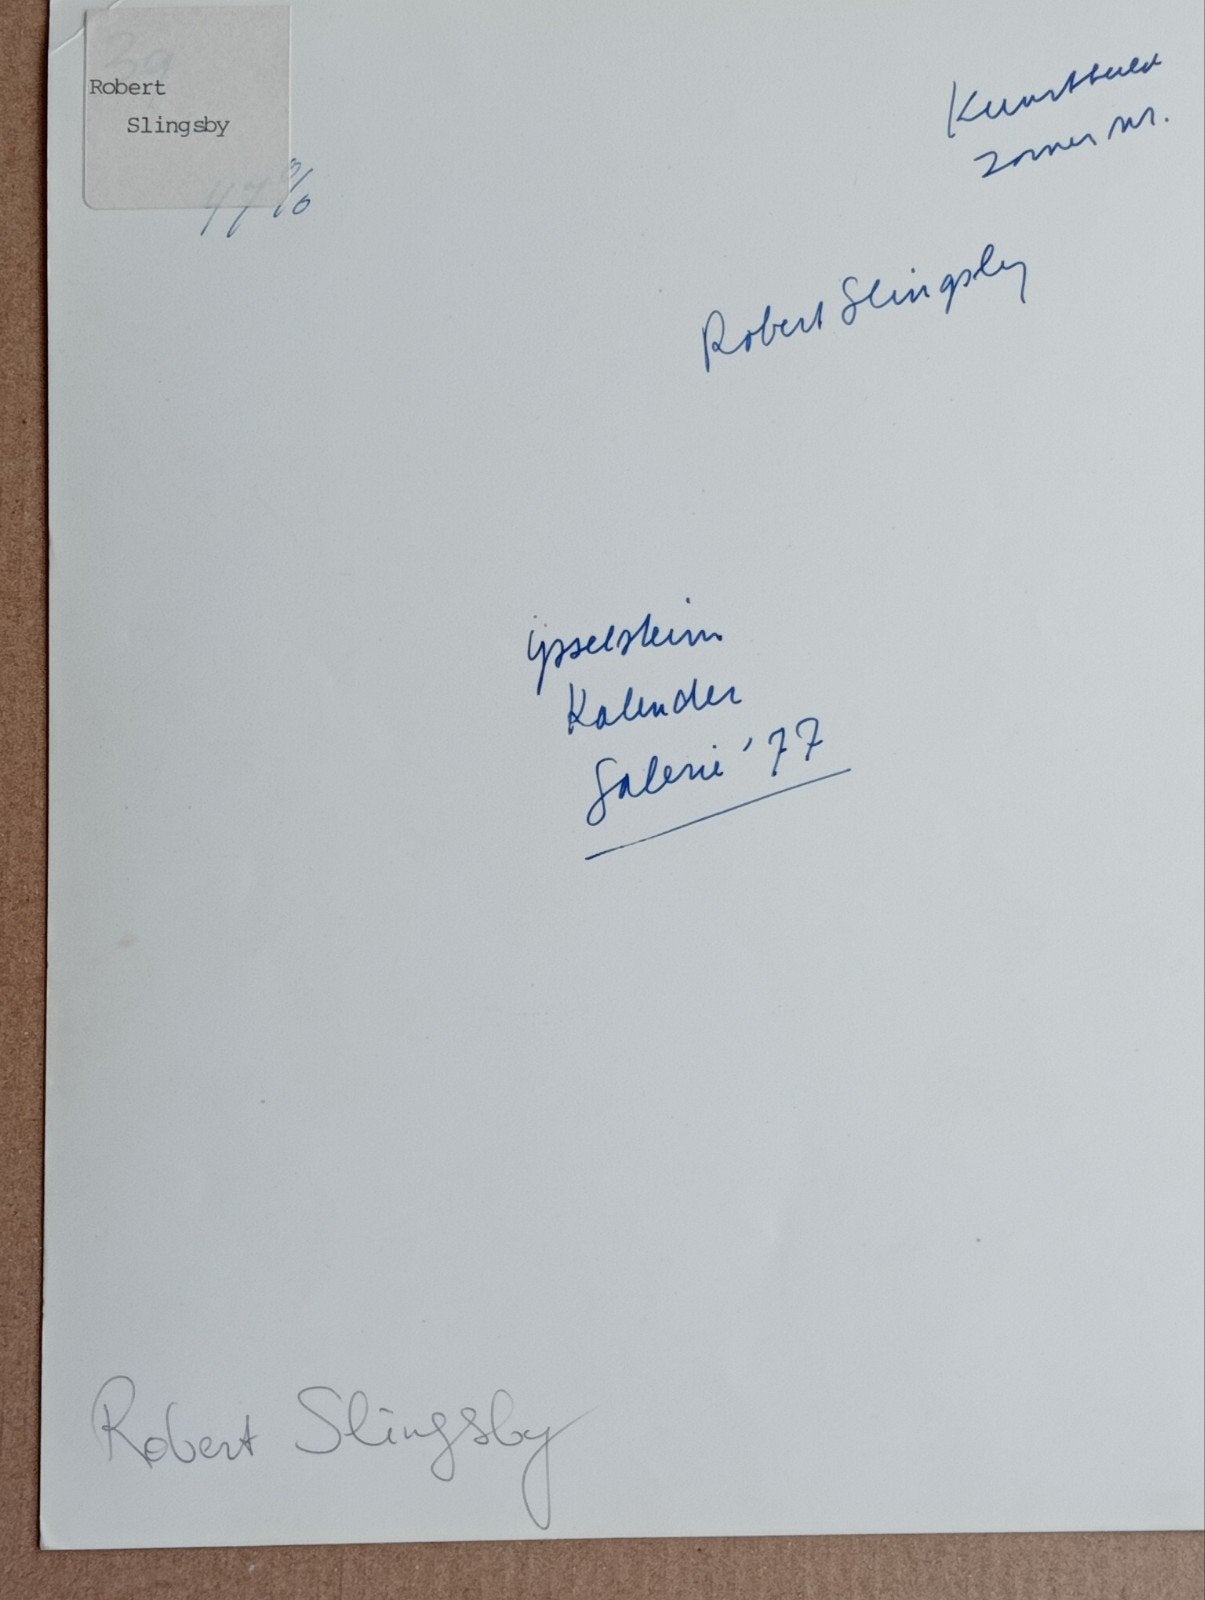 Robert
Slingsby
47%
Kunstbeeld
zomer nr.
Robert Slingsby
ijsselstein
Kalender
Galerie '77
Robert Slingsby